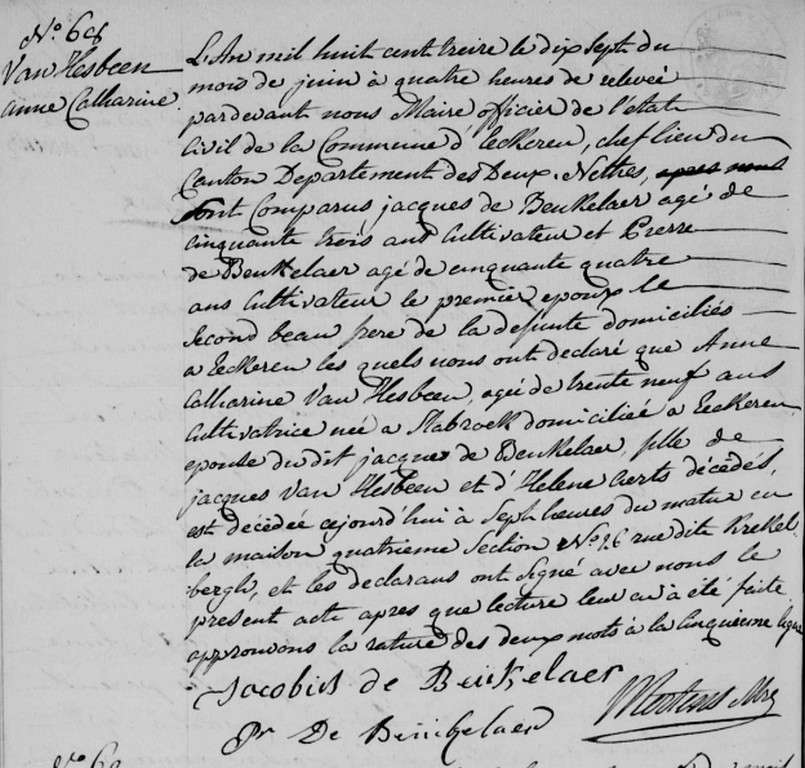 N.o 68
Van Hesbeen
anne Catharine.
L'An mil huit cent treize le dix sept du
mois de juin à quatre heures de relevée
pardevant nous Maire officier de l'état
Civil de la Commune d'Eeckeren, chef lieu du
Canton Departement des Deux. Nethes, apres nous
Sont Comparus jacques de Beukelaer agé de
cinquante trois ans Cultivateur et Pierre
de Beukelaer agé de cinquante quatre
ans Cultivateur le premier epoux le
Second beau frere de la defunte domiciliés
a Eeckeren les quels nous ont declaré que Anne
Catharine Van Hesbeen, agée de trente neuf ans
Cultivatrice née a Stabroek domiciliée a Eeckeren
epouse du dit jacques de Beukelaer, fille de
jacques Van Hesbeen et d'Helene Aerts décédés,
est décédée cejourd'hui à Sept heures du matin en
la maison quatrieme Section N.o 26 rue dite Krekel
bergh, et les declarans ont Signé avec nous le
present acte apres que lecture leur en à été faite
approuvons la rature des deux mots à la Cinquieme ligne
Jacobus de Beukelaer
Pr De Beukelaer
Mertens
N.o 69